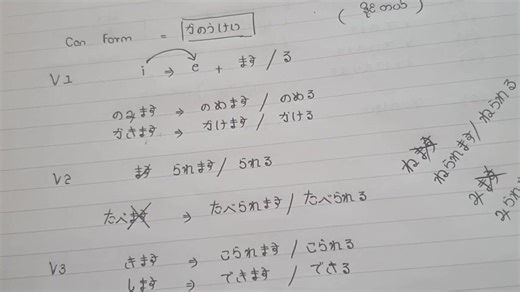 Can Form = かのうけい
V1 i → e + ます / る
のみます ⇒ のめます / のめる
かきます ⇒ かけます / かける
V2 ます られます / られる
たべます ⇒ たべられます / たべられる
V3 きます ⇒ こられます / こられる
します ⇒ できます / できる
ねます
ねられます / ねられる
みます
みられる